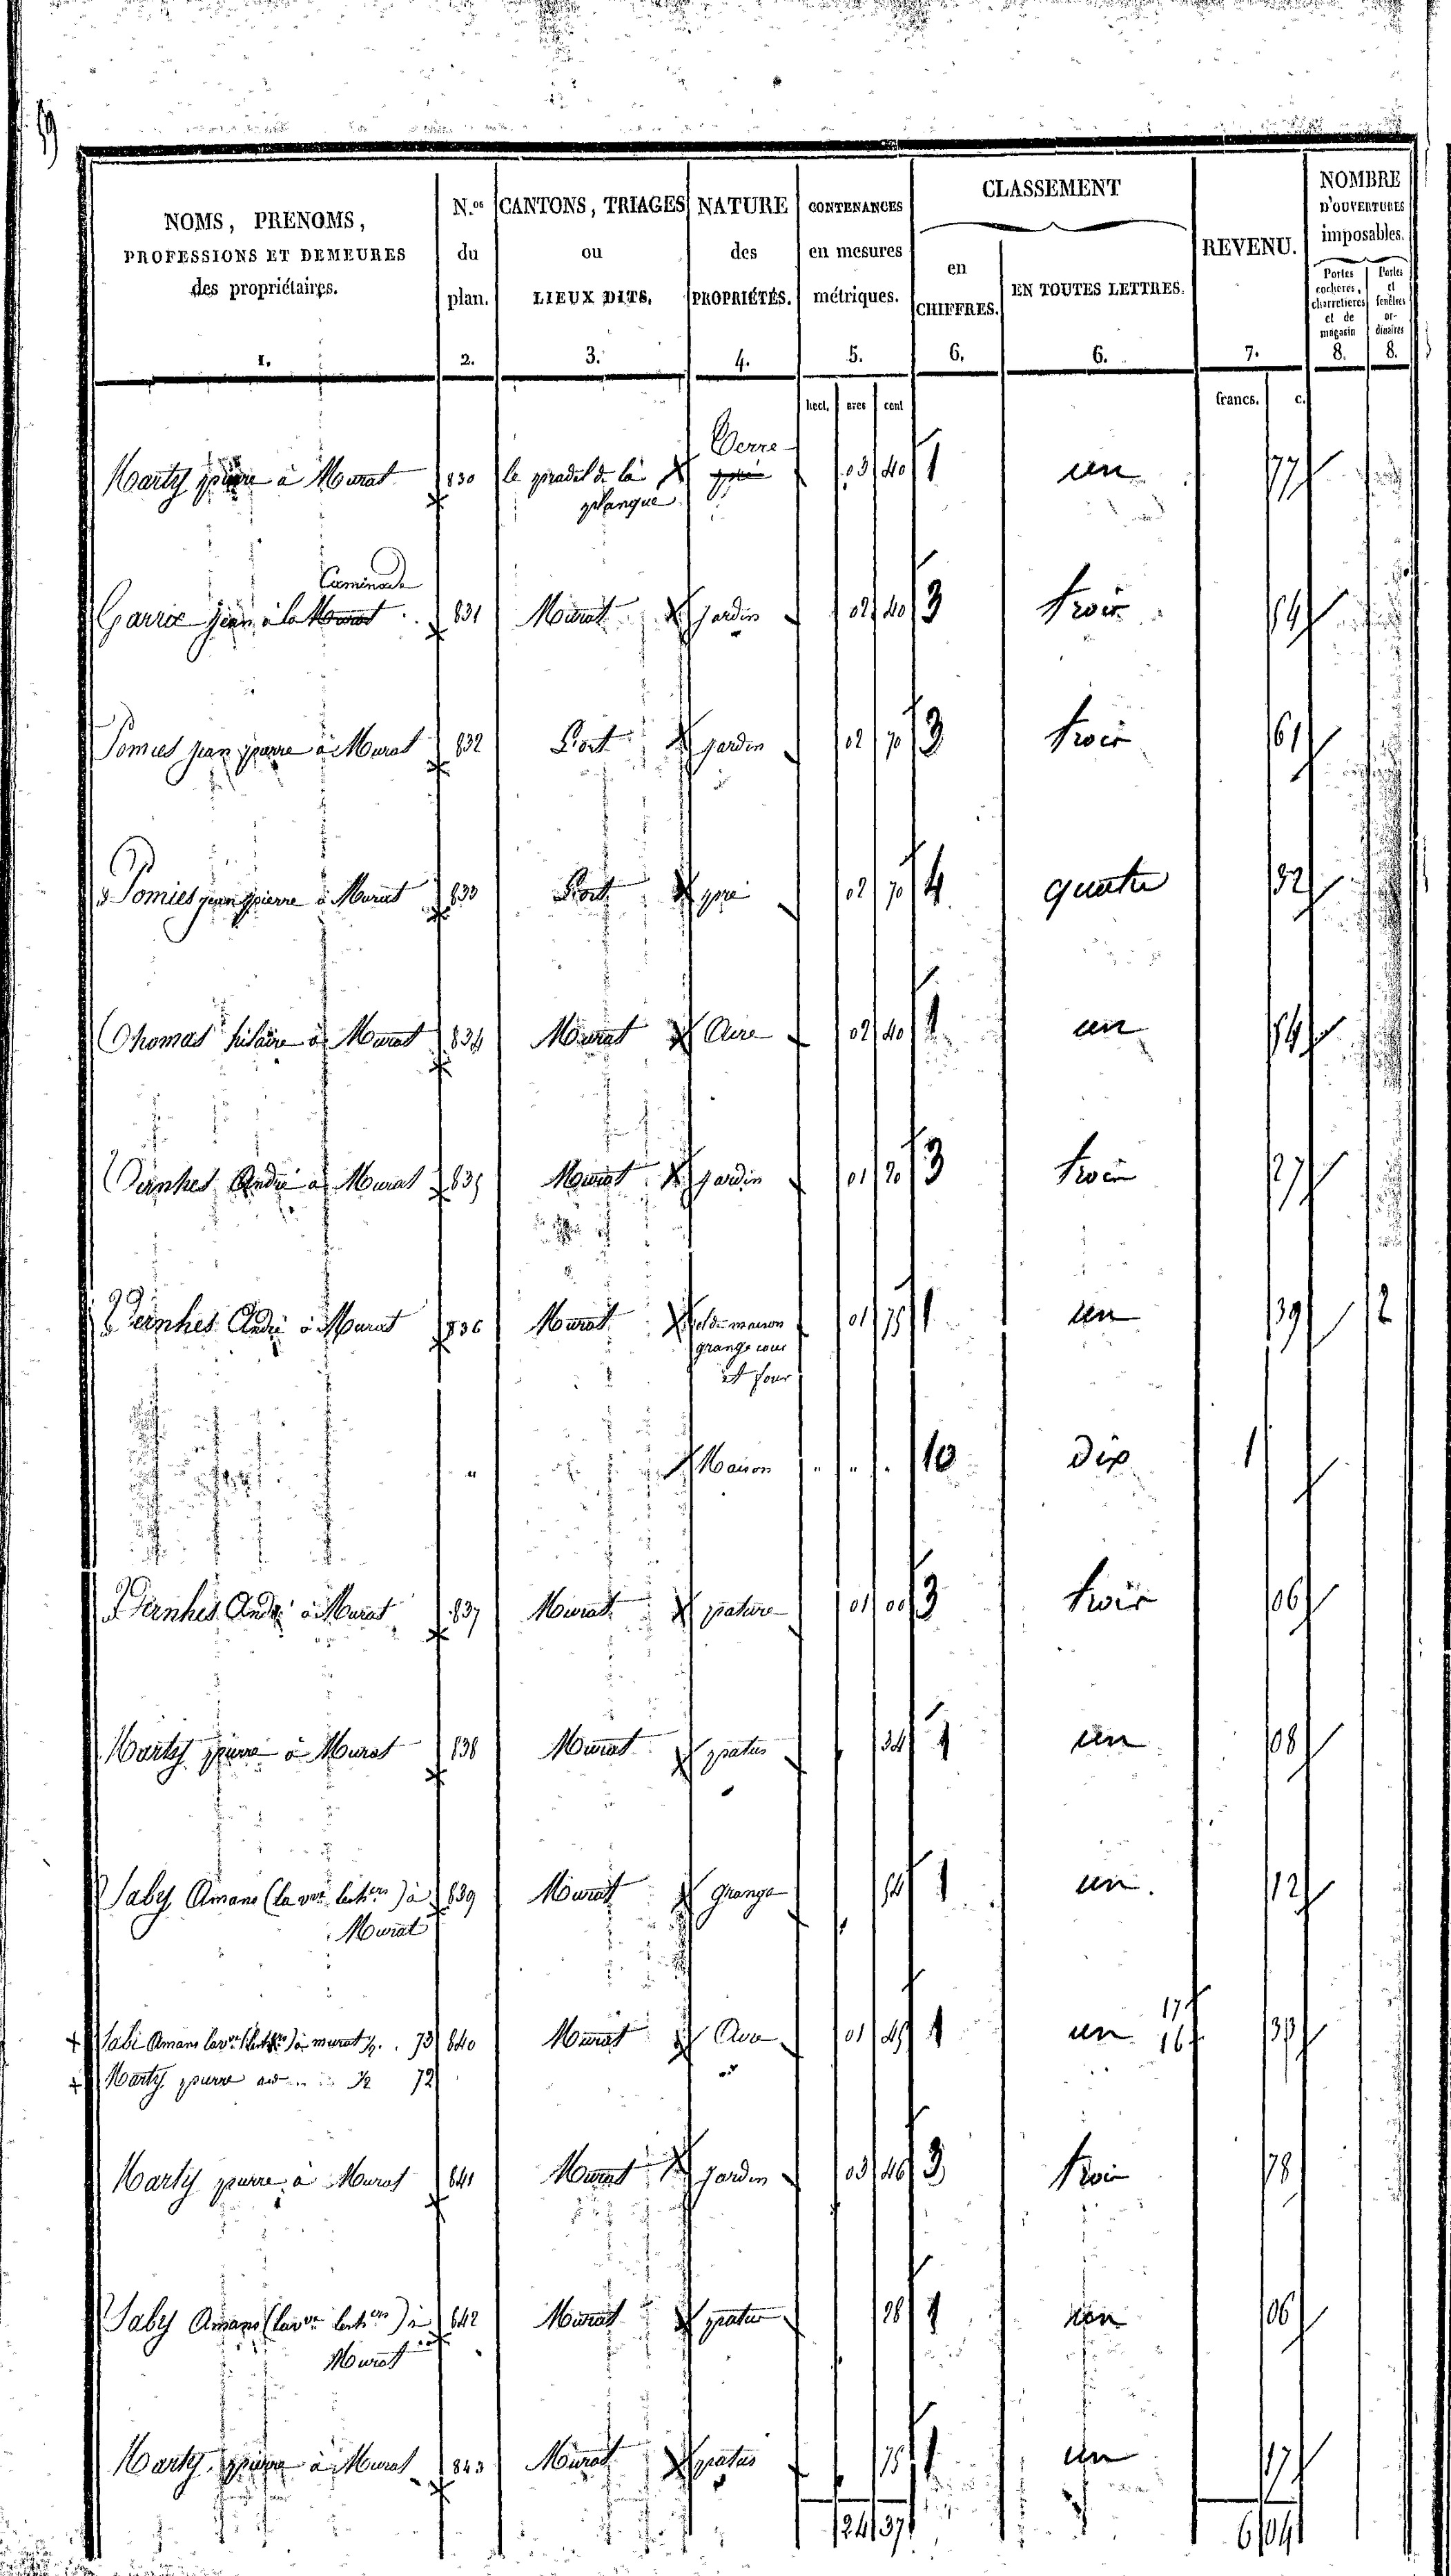 59
NOMS, PRENOMS, PROFESSIONS ET DEMEURES des propriétaires. 1.
N.os du plan. 2.
CANTONS, TRIAGES ou LIEUX DITS. 3.
NATURE des PROPRIÉTÉS. 4.
CONTENANCES en mesures métriques. 5.
CLASSEMENT
en CHIFFRES. 6.
EN TOUTES LETTRES. 6.
REVENU. 7.
NOMBRE D'OUVERTURES imposables.
Portes cochères, charretieres et de magasin 8.
Portes et fenêtres ordinaires 8.
hect. ares cent francs. c.
Terre
Marty pierre à Murat 830 le pradel de la pré 03 40 1 un 77
planque
Caminade
Garric jean à la Murat 831 Murat jardin 02 40 3 trois 54
Pomies jean pierre à Murat 832 Port jardin 02 70 3 trois 61
Pomies jean pierre à Murat 833 Port pré 02 70 4 quatre 32
Thomas hilaire à Murat 834 Murat Aire 02 40 1 un 54
Vernhes André à Murat 835 Murat jardin 01 20 3 trois 27
Vernhes André à Murat 836 Murat sol de maison 01 75 1 un 39 2
grange cour
et four
" Maison " " " 10 Dix 1
Vernhes André à Murat 837 Murat pature 01 00 3 trois 06
Marty pierre à Murat 838 Murat patus 34 1 un 08
Saby Amans (la vve ) à 839 Murat Grange 54 1 un 12
Murat
17
Sabi Amans la ve à murat ½ 73 840 Murat Aire 01 45 1 un 16 33
Marty pierre ½ 72
Marty pierre à Murat 841 Murat jardin 03 46 3 trois 78
Saby Amans (la ve ) à 842 Murat patus 28 1 un 06
Murat
Marty pierre à Murat 843 Murat patus 75 1 un 17
24 37 6 04